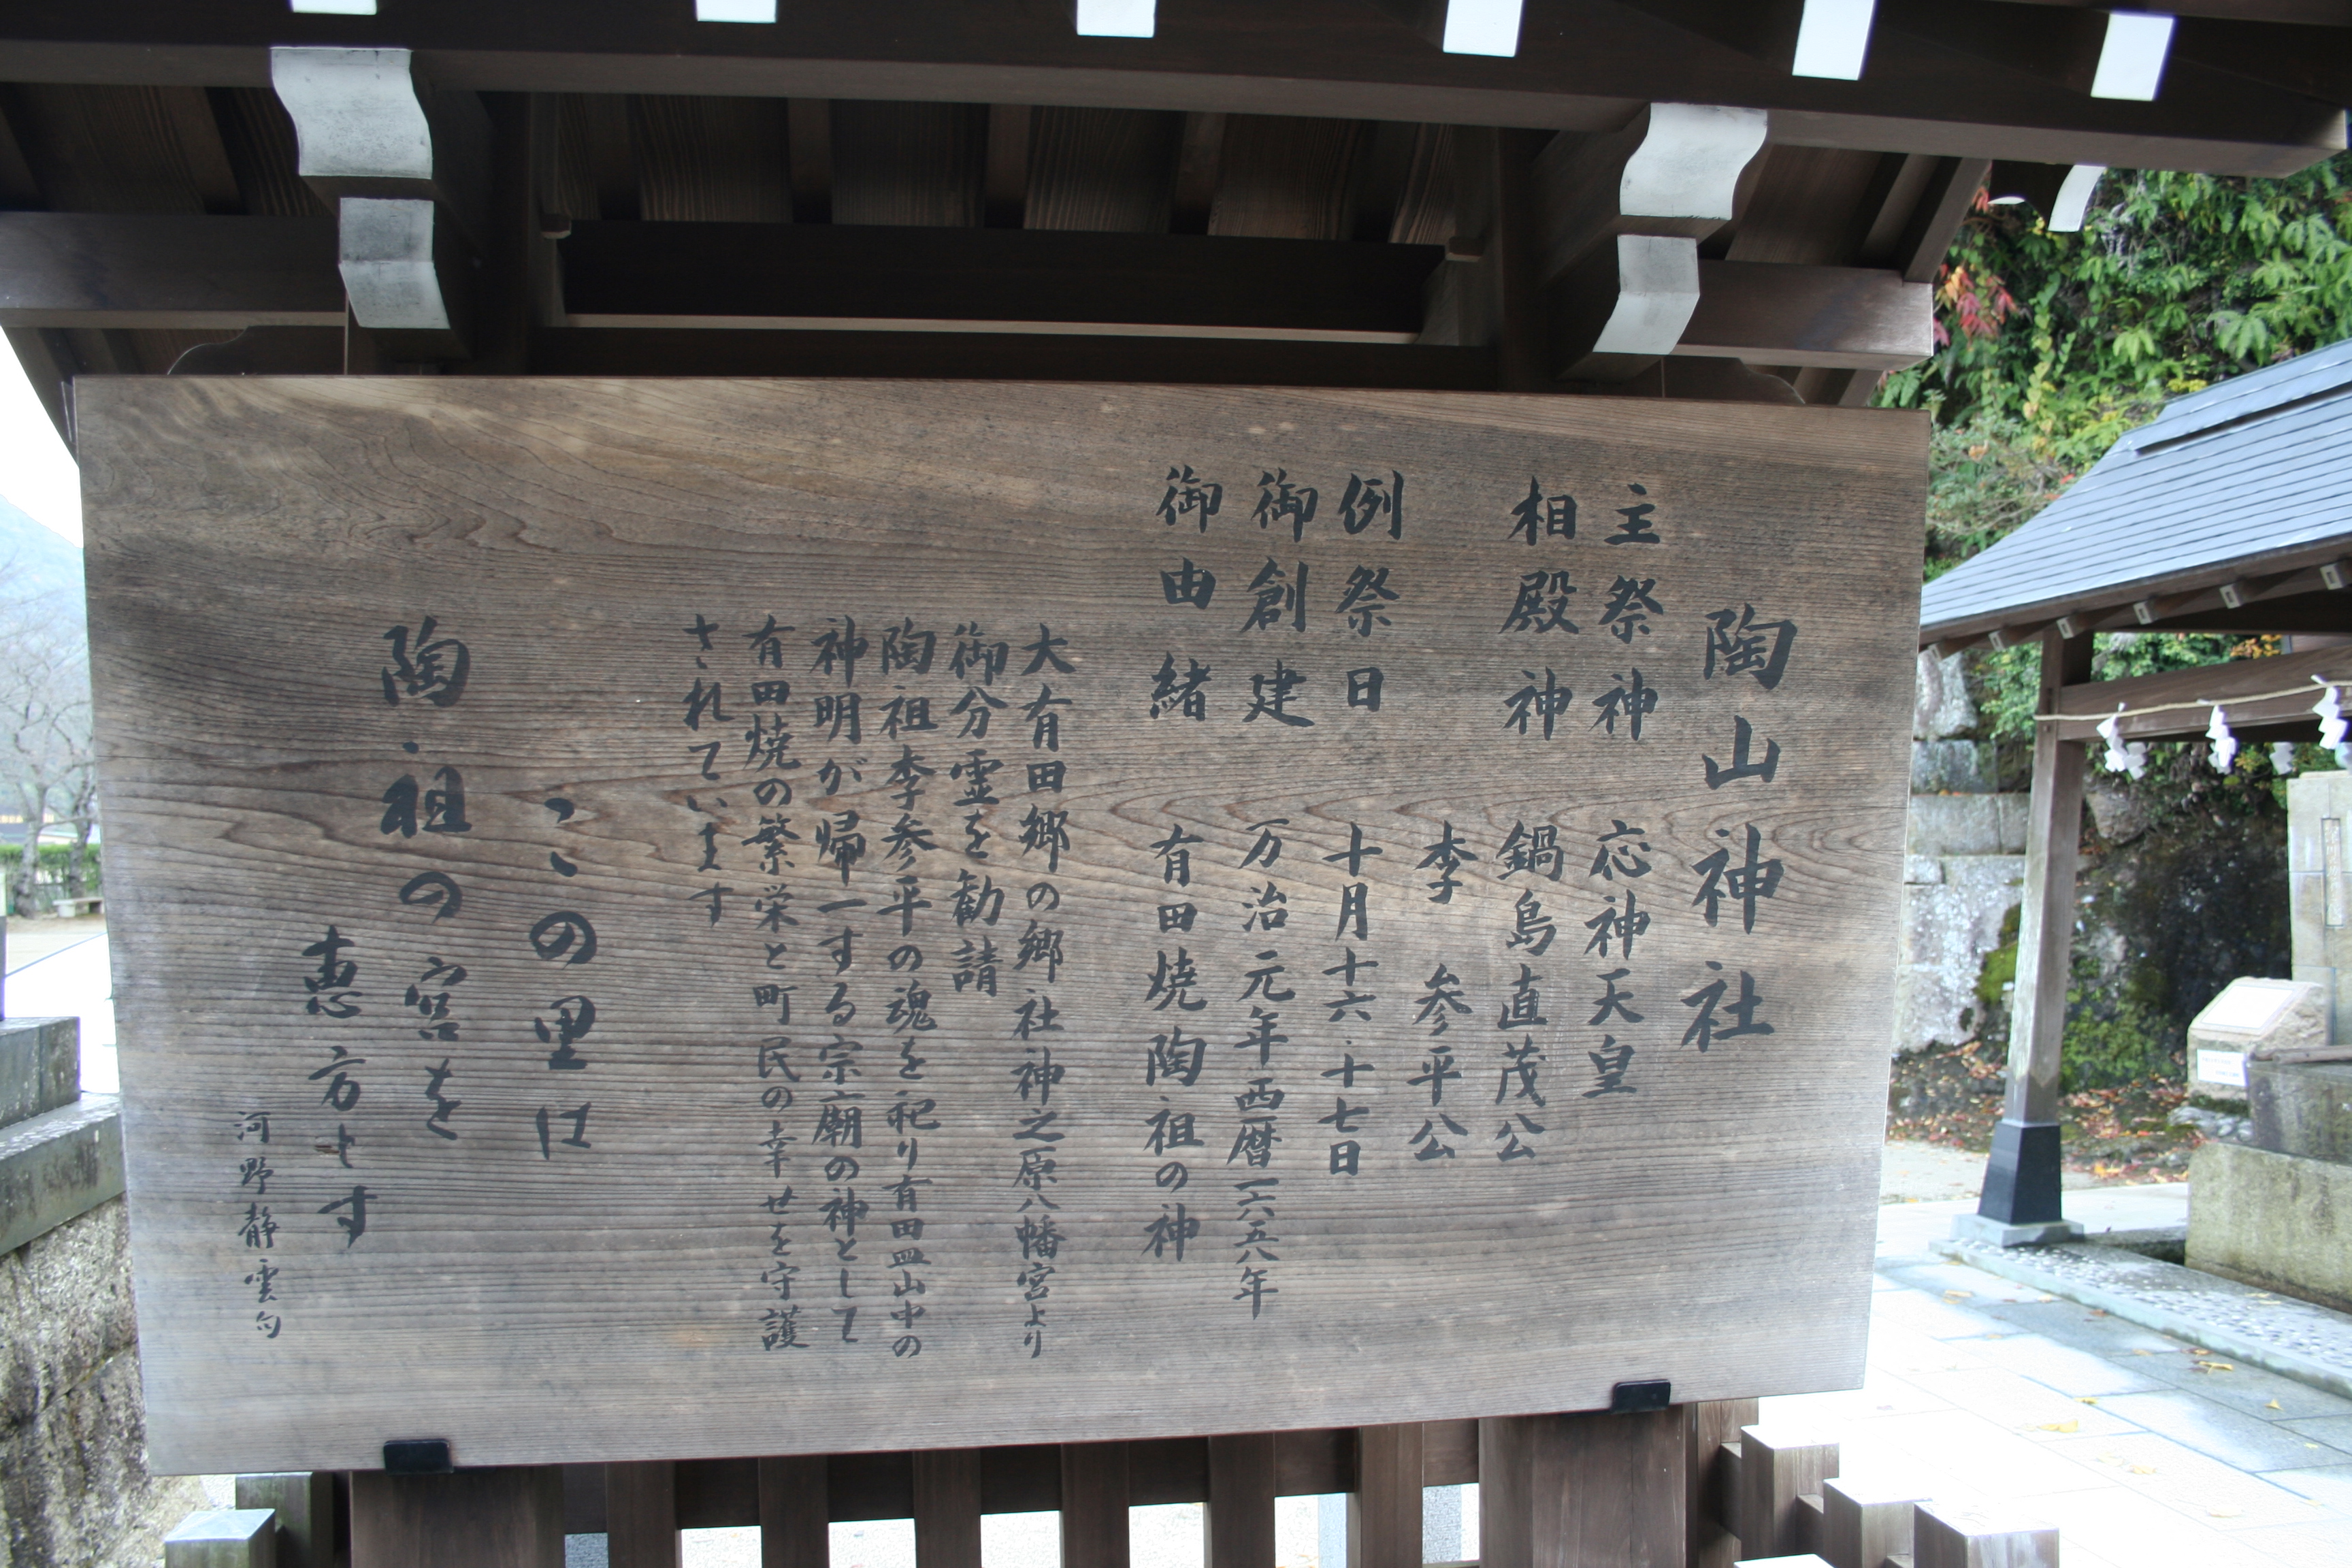 陶山神社
主祭神 応神天皇
相殿神 鍋島直茂公
李 参平公
例祭日 十月十六・十七日
御創建 万治元年西暦一六五八年
御由緒 有田焼陶祖の神
大有田郷の郷社神之原八幡宮より
御分霊を勧請
陶祖李参平の魂を祀り有田皿山中の
神明が帰一する宗廟の神として
有田焼の繁栄と町民の幸せを守護
されています
ここの里は
陶祖の宮を
恵方とす
河野静雲句